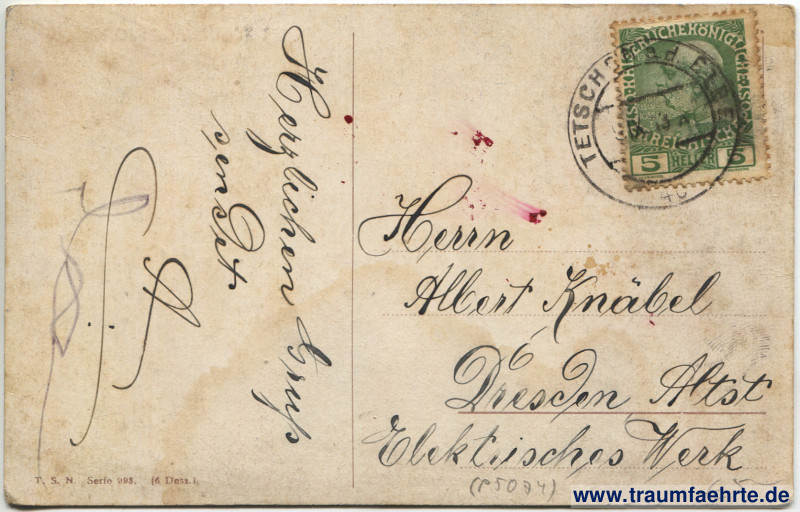 Herzlichen Gruß
sendet
A
KAISERLICHE KÖNIGLICHE ÖSTERREICHISCHE
5 HELLER 5
TETSCHEN a.d. ELBE
Herrn
Albert Knäbel
Dresden Altst
Elektrisches Werk
(P5074)
T. S. N. Serie 993. (6 Dess.).
www.traumfaehrte.de